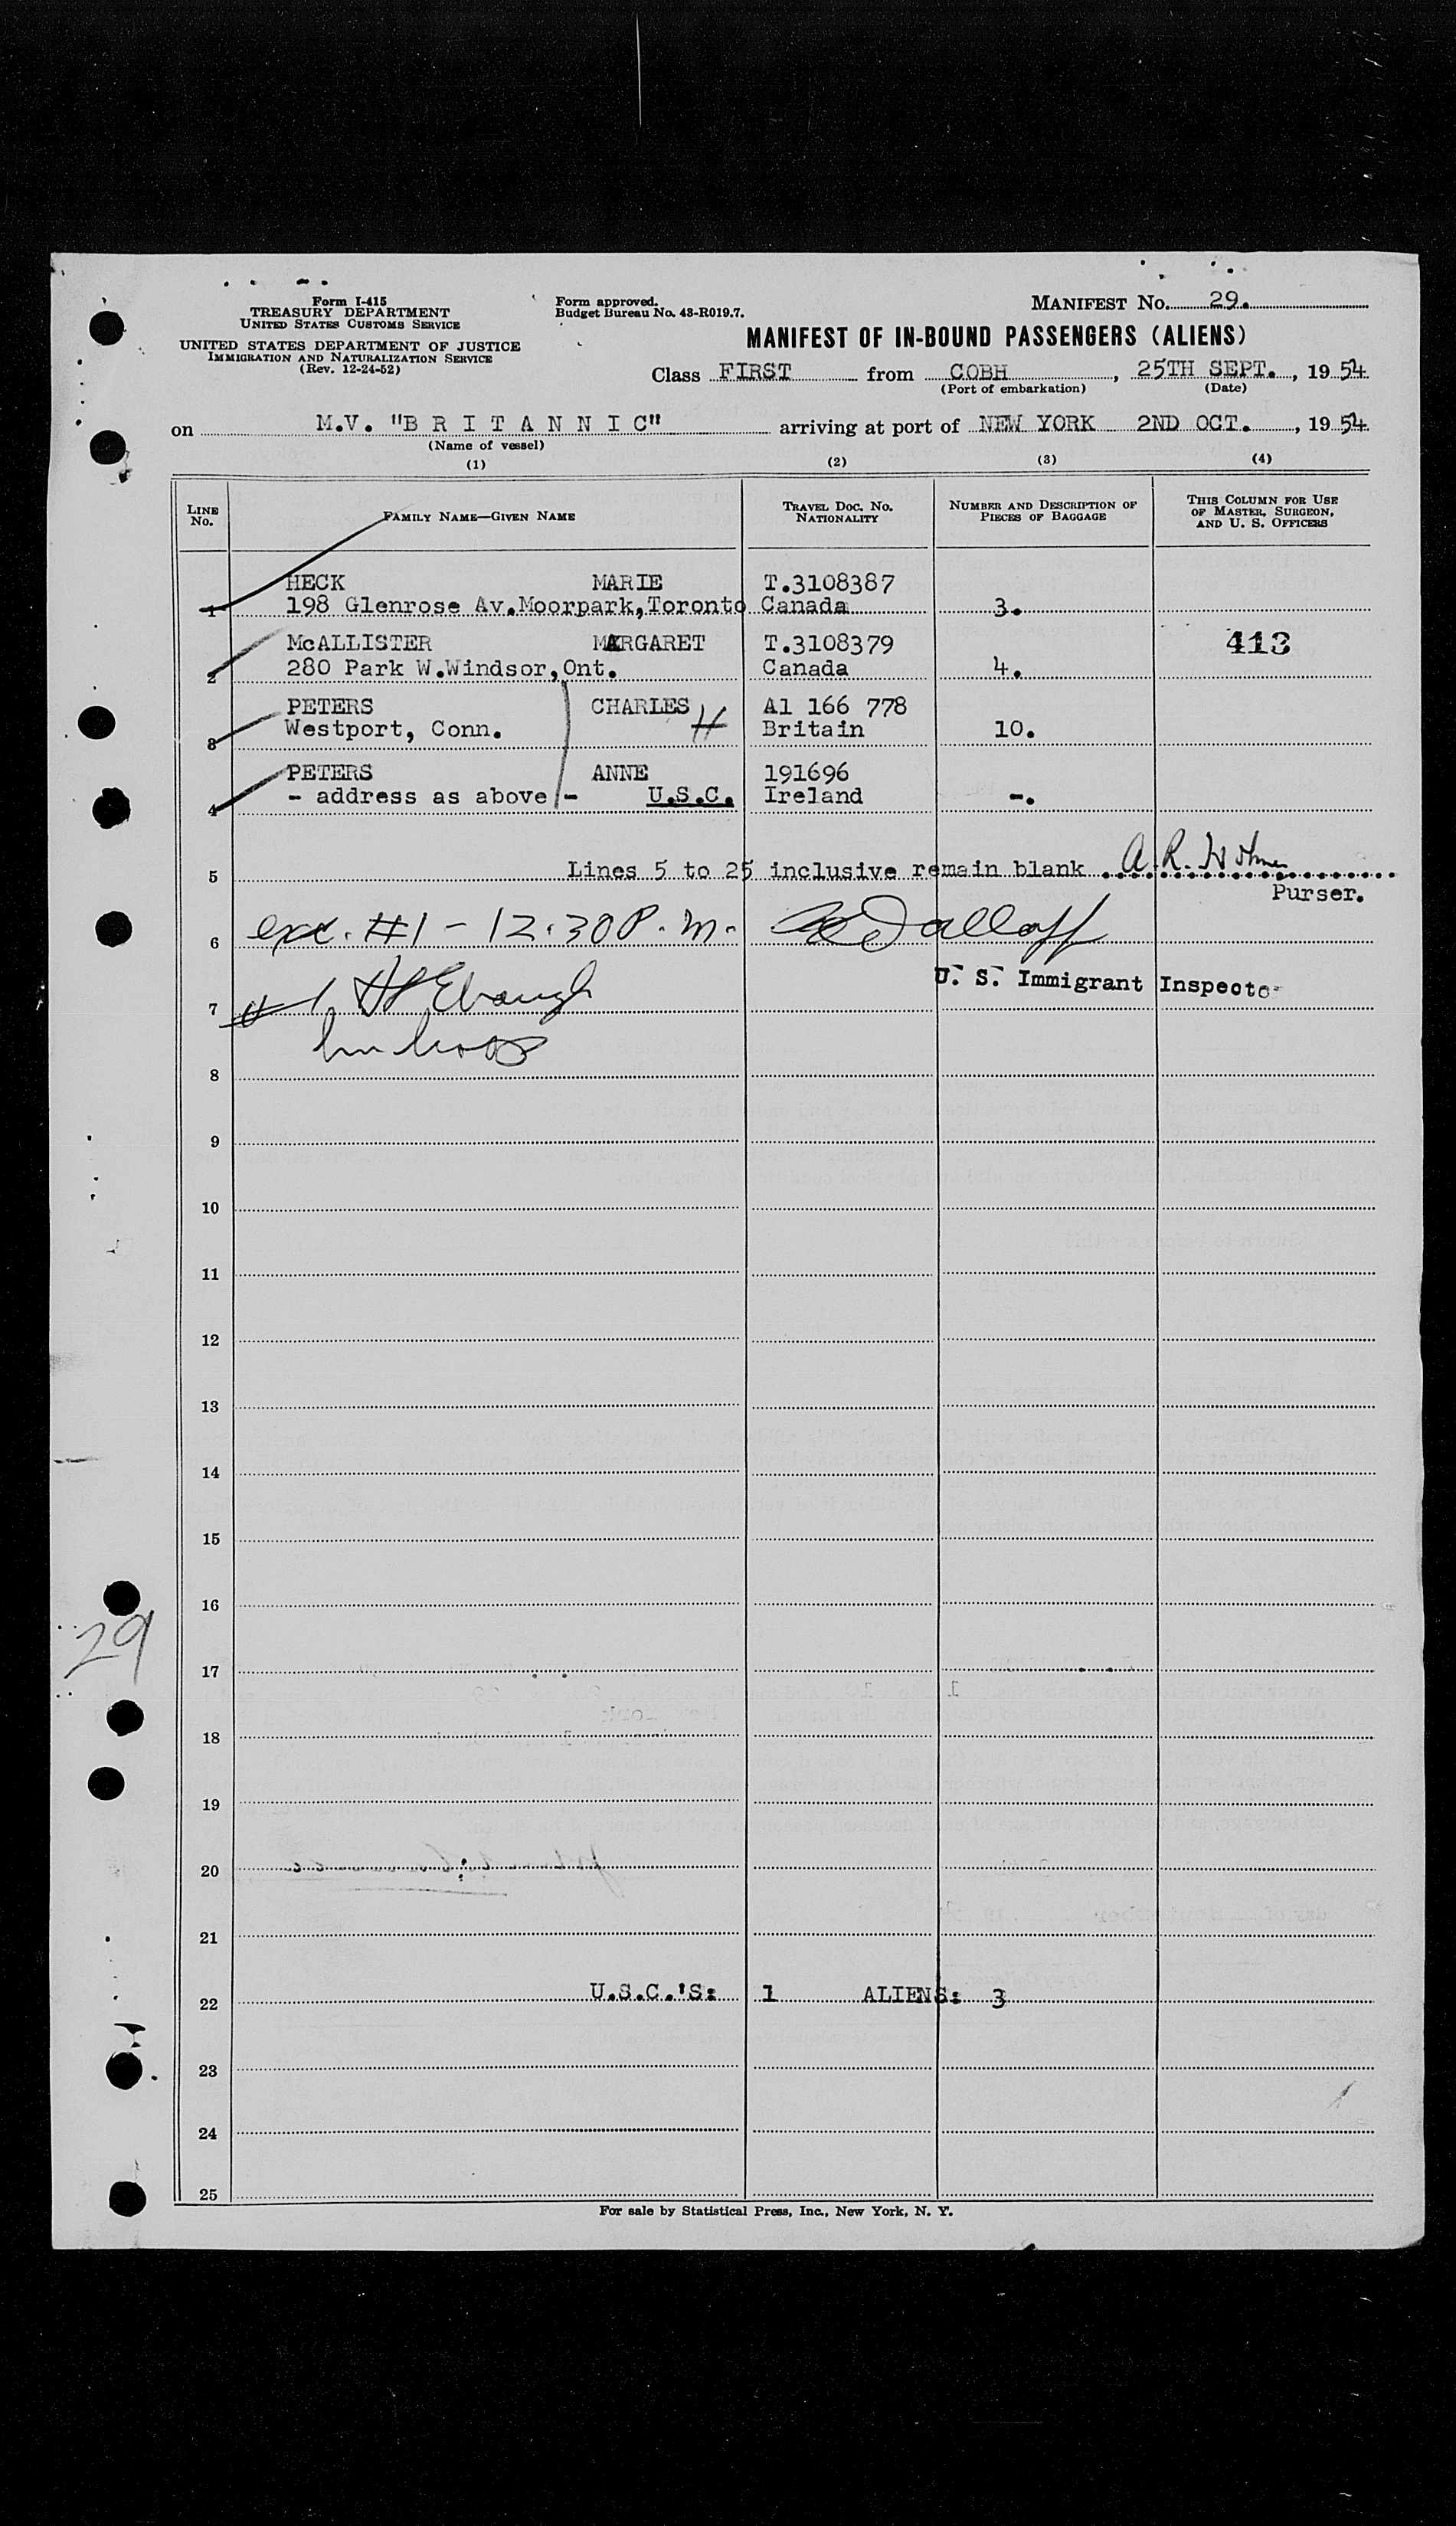 Form I-415
TREASURY DEPARTMENT
UNITED STATES CUSTOMS SERVICE
UNITED STATES DEPARTMENT OF JUSTICE
IMMIGRATION AND NATURALIZATION SERVICE
(Rev. 12-24-52)
Form approved.
Budget Bureau No. 43-R019.7.
MANIFEST No. 29.
MANIFEST OF IN-BOUND PASSENGERS (ALIENS)
Class FIRST from COBH, 25TH SEPT., 1954
(Port of embarkation) (Date)
on M.V. "B R I T A N N I C" arriving at port of NEW YORK 2ND OCT., 1954
(Name of vessel)
(1) (2) (3) (4)
LINE No. FAMILY NAME—GIVEN NAME TRAVEL DOC. NO. NATIONALITY NUMBER AND DESCRIPTION OF PIECES OF BAGGAGE THIS COLUMN FOR USE OF MASTER, SURGEON, AND U. S. OFFICERS
HECK MARIE T.3108387
1 198 Glenrose Av.Moorpark,Toronto Canada 3.
McALLISTER MARGARET T.3108379 413
2 280 Park W.Windsor,Ont. Canada 4.
PETERS CHARLES H A1 166 778
3 Westport, Conn. Britain 10.
PETERS ANNE 191696
4 - address as above - U.S.C. Ireland -.
5 Lines 5 to 25 inclusive remain blank A.R.
Purser.
6 exc. #1 - 12.30 P.m.
U. S. Immigrant Inspector
7 # 1
8
9
10
11
12
13
14
15
16
29
17
18
19
20
21
22 U.S.C.'S: 1 ALIENS: 3
23
24
25
For sale by Statistical Press, Inc., New York, N. Y.